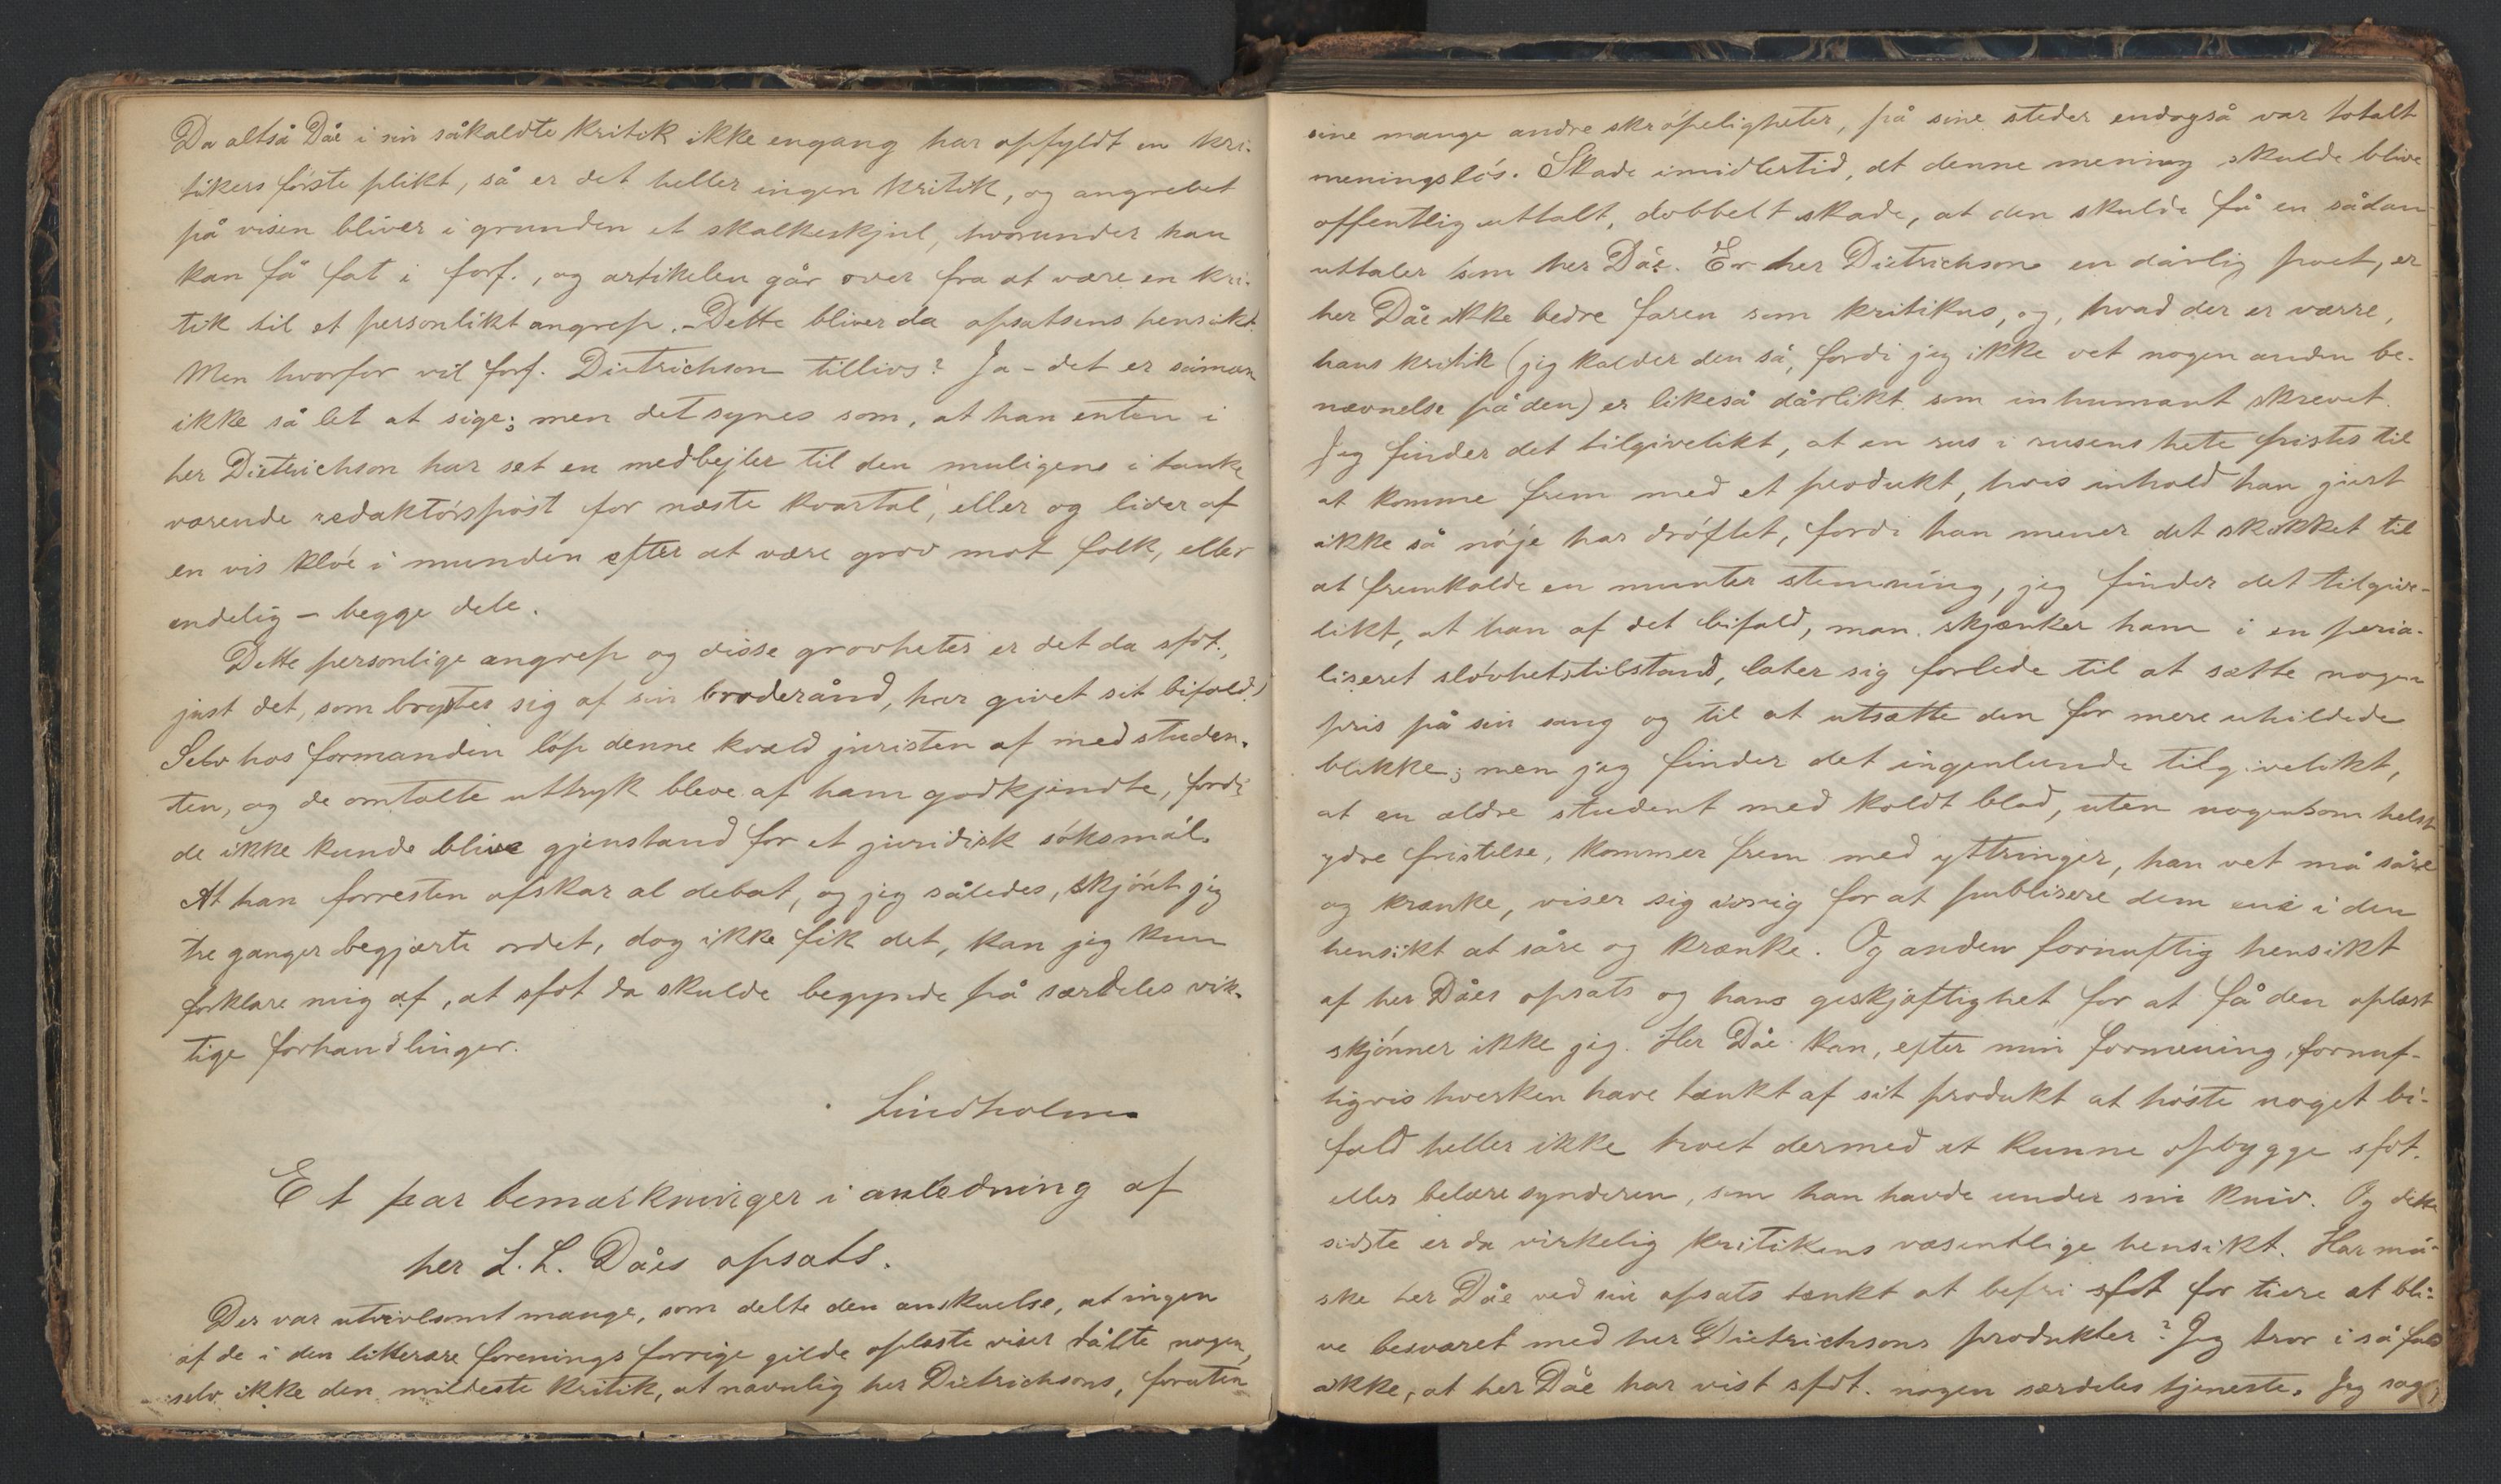 Da altså Dåe i sin såkaldte kritik ikke engang har opfyldt en kri-
tikers første plikt, så er det heller ingen kritik, og angrebet
på visen bliver i grunden et skalkeskjul, hvorunder han
kan få fat i forf., og artikelen går over fra at være en kri-
tik til et personlikt angrep. – Dette bliver da opsatsens hensikt.
Men hvorfor vil forf. Dietrichson tillivs? Ja – det er såmæn
ikke så let at sige; men det synes som, at han enten i
her Dietrichson har set en medbejler til den muligens i tanke
værende redaktørspost for næste kvartal, eller og lider af
en vis kløe i munden efter at være grov mot folk, eller
endelig – begge dele.
Dette personlige angrep og disse grovheter er det da sfdt.,
just det, som bryster sig af sin broderånd, har givet sit bifald!
Selv hos formanden løp denne kvæld juristen af med studen-
ten, og de omtalte uttryk bleve af ham godkjendte, fordi
de ikke kunde blive gjenstand for et juridisk søksmål.
At han forresten afskar al debat, og jeg således, skjønt jeg
tre ganger begjærte ordet, dog ikke fik det, kan jeg kun
forklare mig af, at sfdt da skulde begynde på særdeles vik-
tige forhandlinger.
Lindholm
Et par bemærkninger i anledning af
her L. L. Dåes opsats.
Der var utvivlsomt mange, som delte den anskuelse, at ingen
af de i den litterære forenings forrige gilde oplæste viser tålte nogen,
selv ikke den mildeste kritik, at navnlig her Dietrichsons, foruten
sine mange andre skrøpeligheter, på sine steder endogså var totalt
meningsløs. Skade imidlertid, at denne mening skulde blive
offentlig uttalt, dobbelt skade, at den skulde få en sådan
uttaler som her Dåe. Er her Dietrichson en dårlig poet, er
her Dåe ikke bedre faren som kritikus, og, hvad der er værre,
hans kritik (jeg kalder den så, fordi jeg ikke vet nogen anden be-
nævnelse på den) er likeså dårlikt som inhumant skrevet.
Jeg finder det tilgivelikt, at en rus i rusens hete fristes til
at komme frem med et produkt, hvis inhold han just
ikke så nøje har drøftet, fordi han mener det skikket til
at fremkalde en munter stemning, jeg finder det tilgive-
likt, at han af det bifald, man skjænker ham i en peria-
liseret sløvhetstilstand, later sig forlede til at sætte nogen
pris på sin sang og til at utsætte den for mere uhildede
blikke; men jeg finder det ingenlunde tilgivelikt,
at en ældre student med koldt blod, uten nogensomhelst
ydre fristelse, kommer frem med yttringer, han vet må såre
og krænke, viser sig ivrig for at publisere dem ene i den
hensikt at såre og krænke. Og anden fornuftig hensikt
af her Dåes opsats og hans geskjæftighet for at få den oplæst
skjønner ikke jeg. Her Dåe kan, efter min formening, fornuf-
tigvis hverken have tænkt af sit produkt at høste noget bi-
fald heller ikke troet dermed at kunne opbygge sfdt.
eller belære synderen, som han havde under sin kniv. Og dette
sidste er da virkelig kritikens væsentlige hensikt. Har må-
ske her Dåe ved sin opsats tænkt at befri sfdt for tiere at bli-
ve besværet med her Dietrichsons produkter? Jeg tror i så fald
ikke, at her Dåe har vist sfdt. nogen særdeles tjeneste. Jeg sag